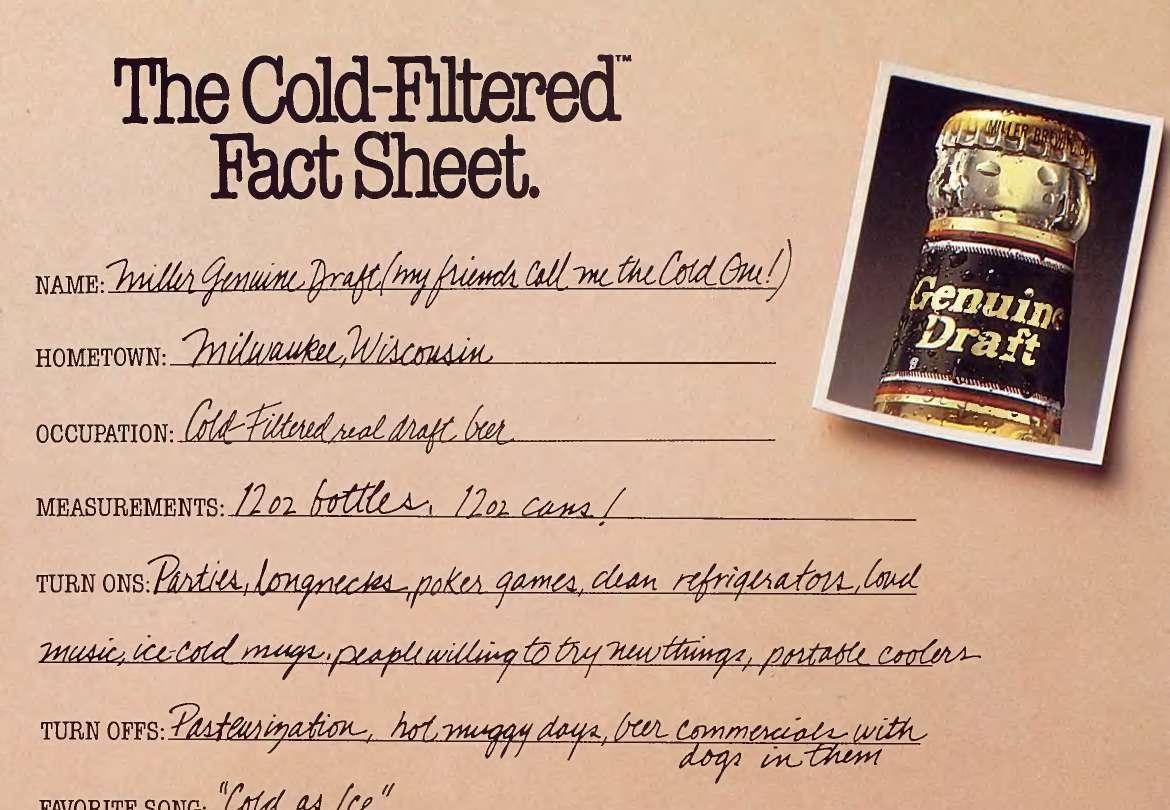 The Cold-Filtered™
Fact Sheet.
NAME: Miller Genuine Draft (my friends call me the Cold One!)
HOMETOWN: Milwaukee, Wisconsin
OCCUPATION: Cold Filtered real draft beer
MEASUREMENTS: 12oz bottles, 12oz cans!
TURN ONS: Parties, longnecks, poker games, clean refrigerators, loud
music, ice-cold mugs, people willing to try new things, portable coolers
TURN OFFS: Pasteurization, hot muggy days, beer commercials with
dogs in them
FAVORITE SONG: "Cold as Ice"
MILLER BREWING
Genuine
Draft